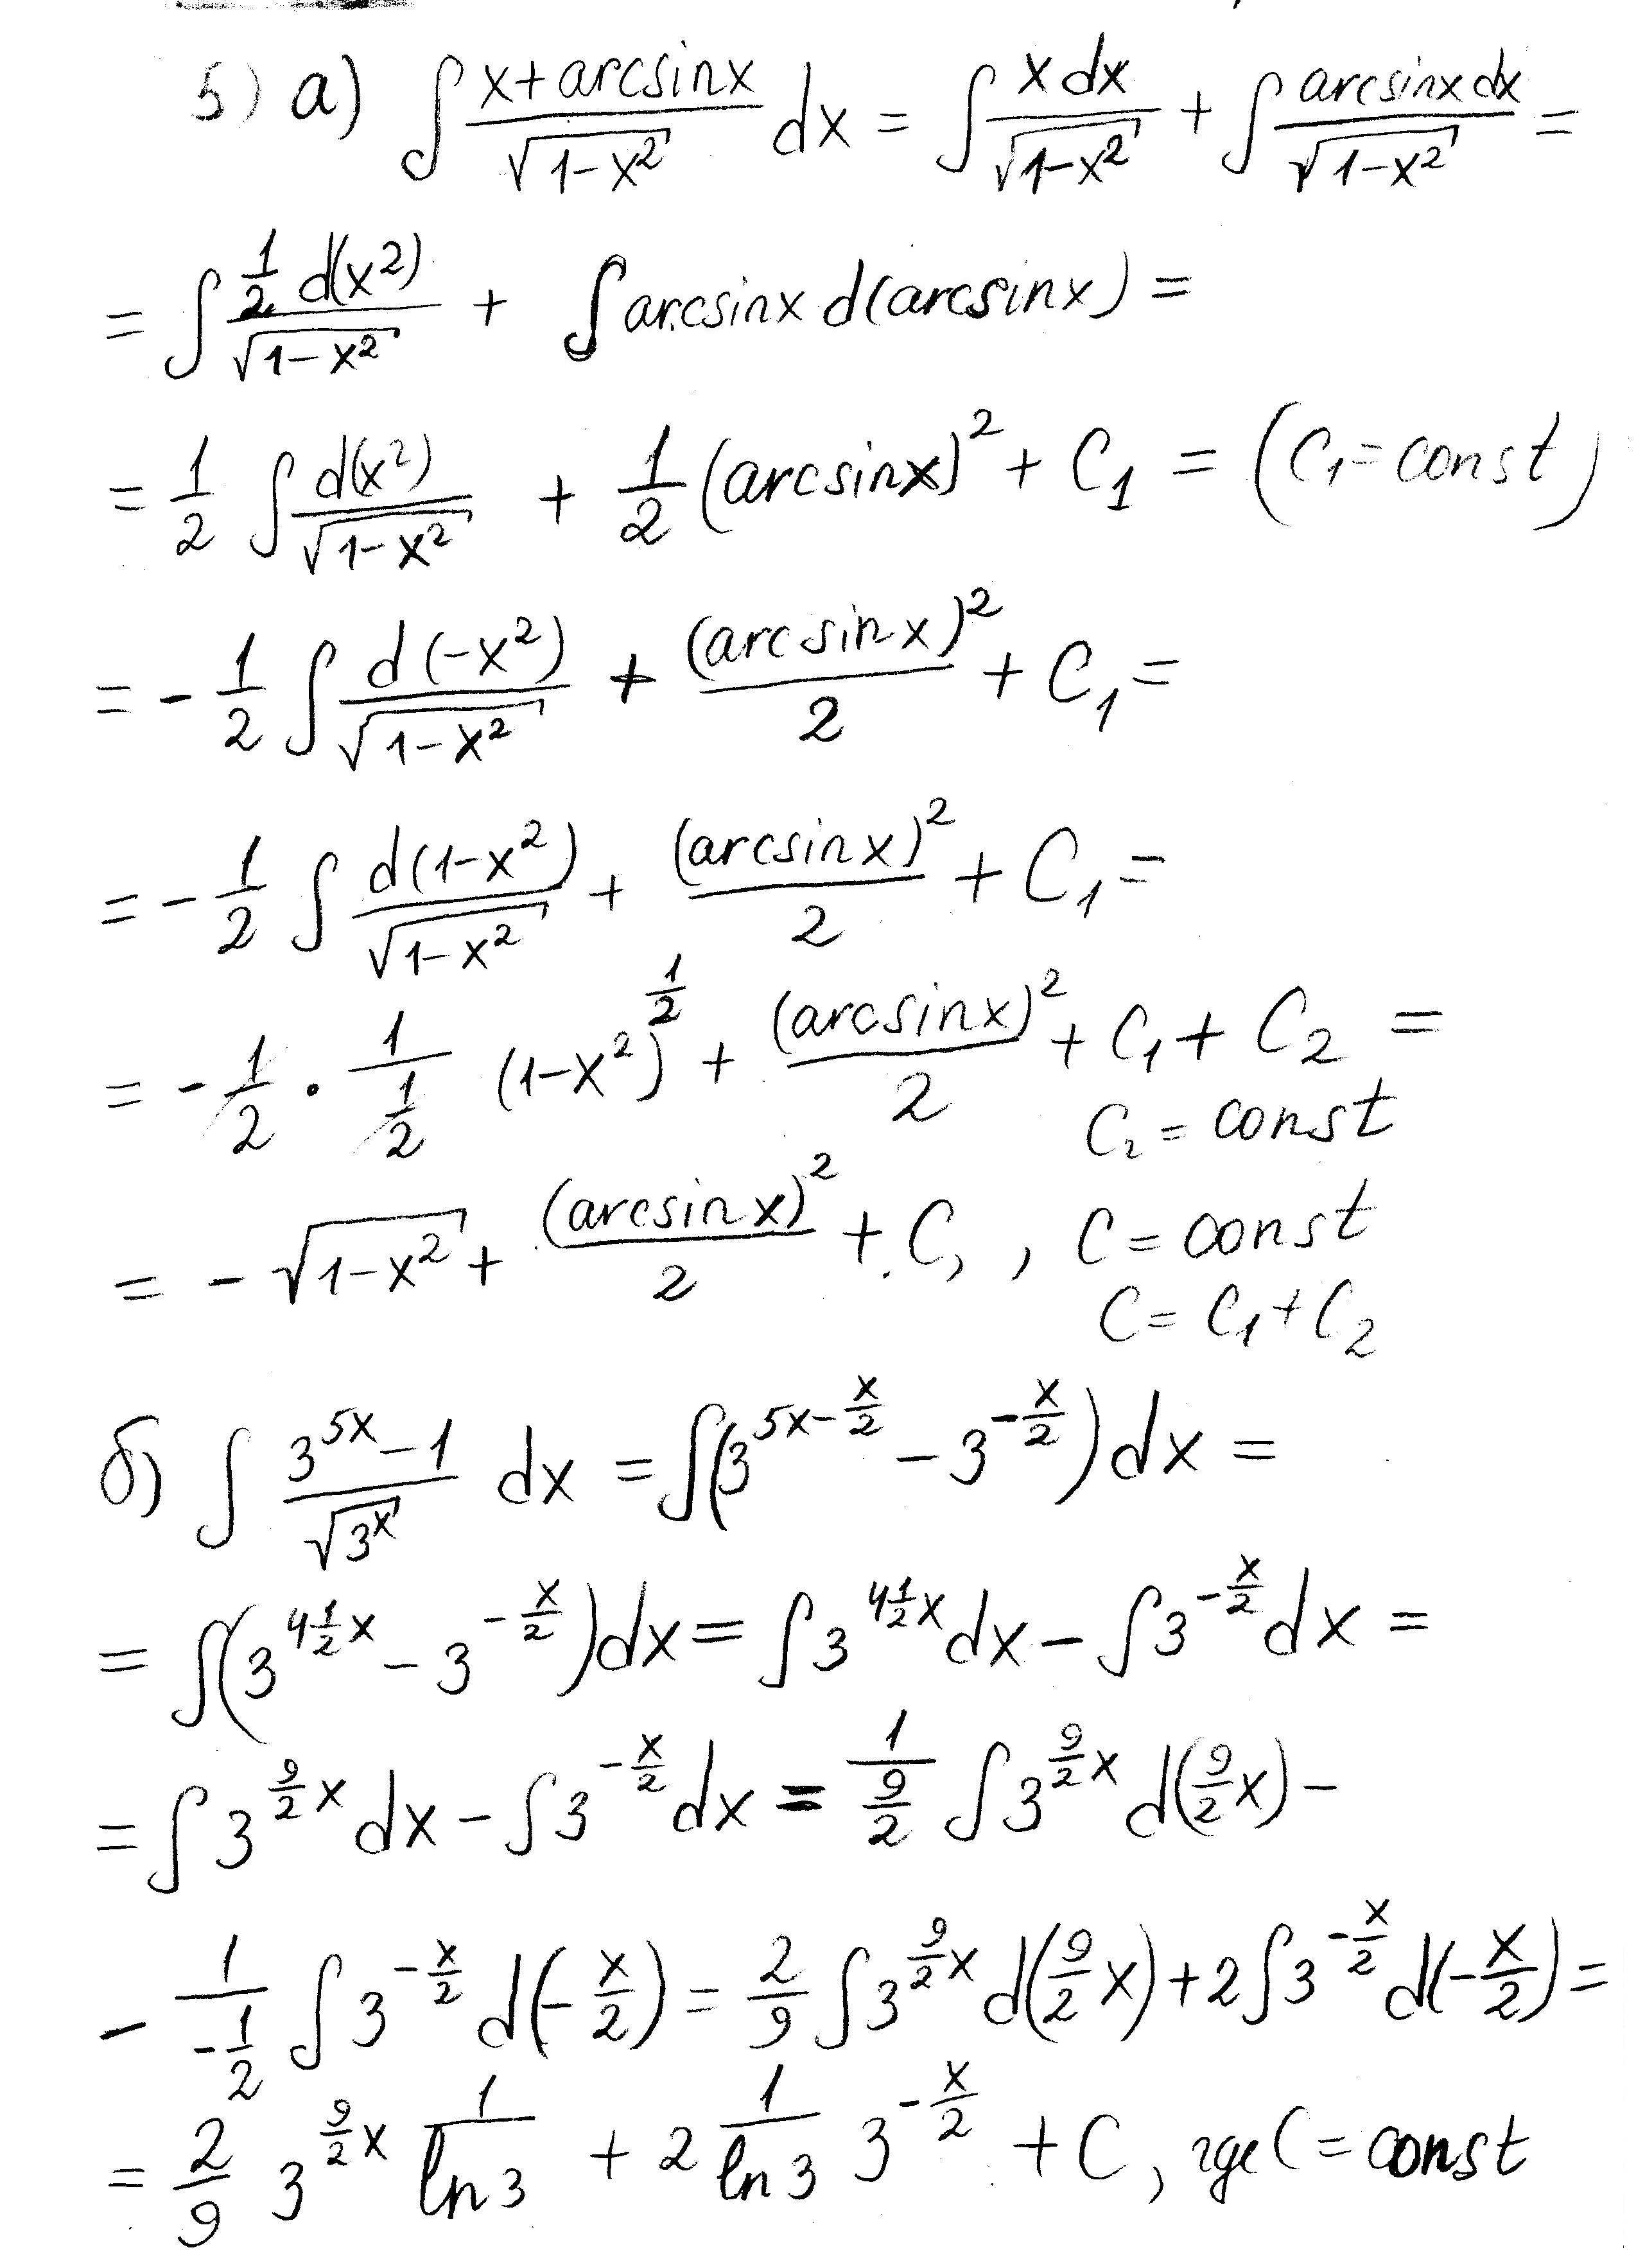 5) а) ∫ (x+arcsinx)/√(1-x²) dx = ∫ xdx/√(1-x²) + ∫ arcsinxdx/√(1-x²) =
= ∫ ½d(x²)/√(1-x²) + ∫ arcsinx d(arcsinx) =
= 1/2 ∫ d(x²)/√(1-x²) + 1/2 (arcsinx)² + C₁ = (C₁=const)
= -1/2 ∫ d(-x²)/√(1-x²) + (arcsinx)²/2 + C₁ =
= -1/2 ∫ d(1-x²)/√(1-x²) + (arcsinx)²/2 + C₁ =
= -1/2 · 1/(1/2) (1-x²)^(1/2) + (arcsinx)²/2 + C₁ + C₂ =
C₂ = const
= -√(1-x²) + (arcsinx)²/2 + C, , C = const
C = C₁ + C₂
б) ∫ (3^(5x) - 1)/√(3^x) dx = ∫(3^(5x-x/2) - 3^(-x/2))dx =
= ∫(3^(4½x) - 3^(-x/2))dx = ∫3^(4½x)dx - ∫3^(-x/2)dx =
= ∫3^(9/2 x)dx - ∫3^(-x/2)dx = 1/(9/2) ∫3^(9/2 x) d(9/2 x) -
- 1/(-1/2) ∫3^(-x/2) d(-x/2) = 2/9 ∫3^(9/2 x) d(9/2 x) + 2∫3^(-x/2) d(-x/2) =
= 2/9 3^(9/2 x) 1/ln3 + 2 1/ln3 3^(-x/2) + C, где C = const